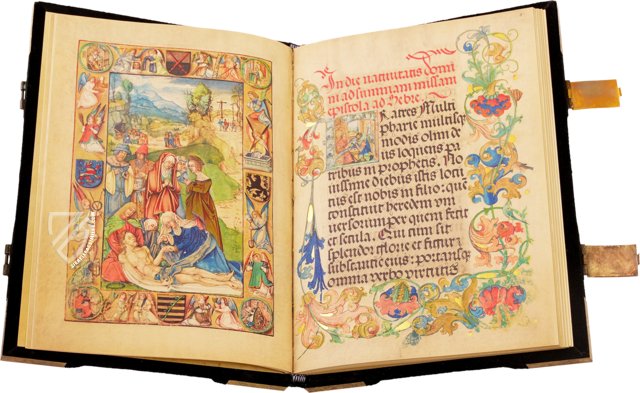 In die nativitatis domi
ni ad summam missam
epistola ad Hebre.
Fratres Multi
pharie multisq
modis olim de
us loquens pa
tribus in prophetis. No
uissime diebus istis locu
tus est nobis in filio: quē
constituit heredem vni
uersorum per quem fecit
et secula. Qui cum sit
splendor glorie et figura
substantie eius: portansq
omnia verbo virtutis